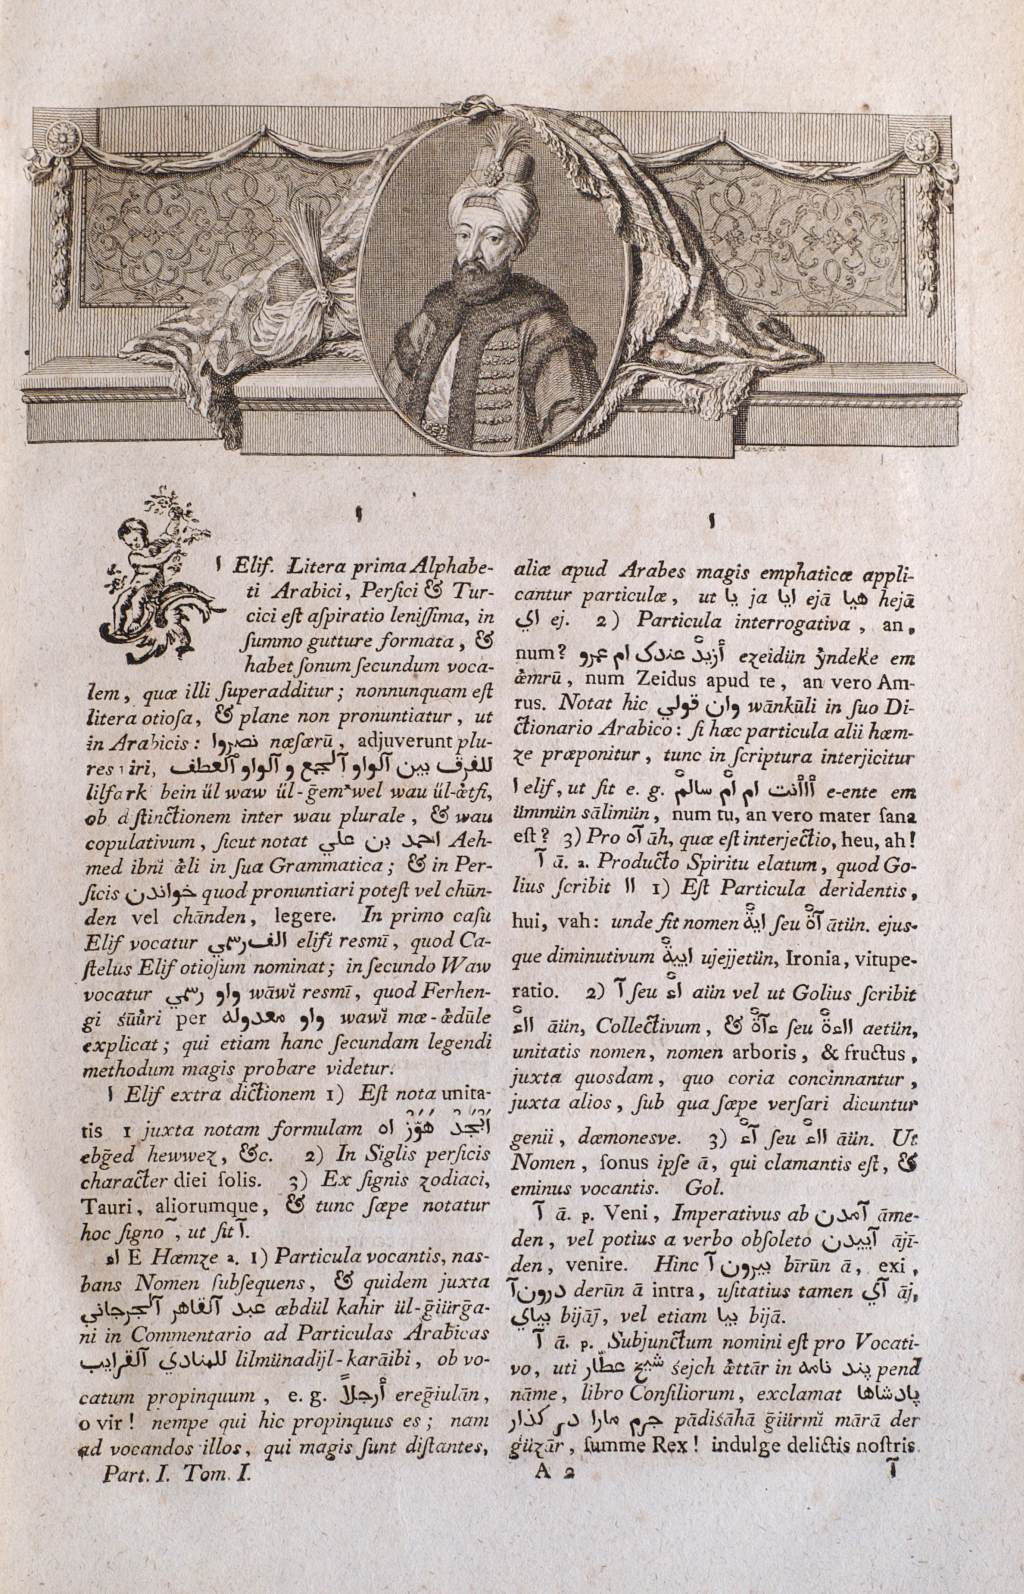 Mansfeld sc.
ا
ا Elif. Litera prima Alphabe-
ti Arabici, Perſici & Tur-
cici eſt aſpiratio leniſſima, in
ſummo gutture formata, &
habet ſonum ſecundum voca-
lem, quæ illi ſuperadditur; nonnunquam eſt
litera otioſa, & plane non pronuntiatur, ut
in Arabicis: نصروا næſærū, adjuverunt plu-
res viri, للفرق بين آلواو آلجمع و آلواو آلعطف
lilfark bein ül waw ül-ḡem' wel wau ül-ætfi,
ob diſtinctionem inter wau plurale, & wau
copulativum, ſicut notat احمد بن علي Aeh-
med ibni æli in ſua Grammatica; & in Per-
ſicis خواندن quod pronuntiari poteſt vel chūn-
den vel chānden, legere. In primo caſu
Elif vocatur الف رسمي elifi resmī, quod Ca-
ſtelus Elif otioſum nominat; in ſecundo Waw
vocatur واو رسمي wāwi resmī, quod Ferhen-
gi śūūri per واو معدوله wawi mæ-ædūle
explicat; qui etiam hanc ſecundam legendi
methodum magis probare videtur.
ا Elif extra dictionem 1) Eſt nota unita-
tis 1 juxta notam formulam ابجد هوّز اه
ebḡed hewwez, &c. 2) In Siglis perſicis
character diei ſolis. 3) Ex ſignis zodiaci,
Tauri, aliorumque, & tunc ſæpe notatur
hoc ſigno ~, ut ſit آ.
اء E Hæmze a. 1) Particula vocantis, nas-
bans Nomen ſubſequens, & quidem juxta
عبد آلقاهر آلجرجاني æbdül kahir ül-ḡiürḡa-
ni in Commentario ad Particulas Arabicas
للمنادي آلقرايب lilmünadijl-karāibi, ob vo-
catum propinquum, e. g. أرجلاً ereḡiulān,
o vir! nempe qui hic propinquus es; nam
ad vocandos illos, qui magis ſunt diſtantes,
Part. I. Tom. I.
ا
aliæ apud Arabes magis emphaticæ appli-
cantur particulæ, ut يا ja ايا ejā هيا hejā
اي ej. 2) Particula interrogativa, an,
num? أزيد عندك ام عمرو ezeidün ÿndeke em
æmrū, num Zeidus apud te, an vero Am-
rus. Notat hic وان قولي wānkūli in ſuo Di-
ctionario Arabico: ſi hæc particula alii hæm-
ze præponitur, tunc in ſcriptura interjicitur
ا elif, ut ſit e. g. أاأنت ام أم سالم e-ente em
ümmün sālimün, num tu, an vero mater ſana
eſt? 3) Pro آه āh, quæ eſt interjectio, heu, ah!
آ ā. a. Producto Spiritu elatum, quod Go-
lius ſcribit اا 1) Eſt Particula deridentis,
hui, vah: unde fit nomen اية ſeu آة ātün. ejus-
que diminutivum اييية ujejjetün, Ironia, vitupe-
ratio. 2) آ ſeu اء aün vel ut Golius ſcribit
ااء āün, Collectivum, & ءآة ſeu ااءة aetün,
unitatis nomen, nomen arboris, & fructus,
juxta quosdam, quo coria concinnantur,
juxta alios, ſub qua ſæpe verſari dicuntur
genii, dæmonesve. 3) آء ſeu ااء āün. Ut
Nomen, ſonus ipſe ā, qui clamantis eſt, &
eminus vocantis. Gol.
آ ā. p. Veni, Imperativus ab آمدن āme-
den, vel potius a verbo obſoleto آييدن ājī-
den, venire. Hinc بيرون آ bīrūn ā, exi,
درون آ derūn ā intra, uſitatius tamen آي āj,
بياي bijāj, vel etiam بيا bijā.
آ ā. p. Subjunctum nomini eſt pro Vocati-
vo, uti شيخ عطّار śejch ættār in پند نامه pend
nāme, libro Conſiliorum, exclamat پادشاها
جرم مارا در كذار pādiśāhā ḡiürmi mārā der
güzār, ſumme Rex! indulge delictis noſtris.
A 2
آ